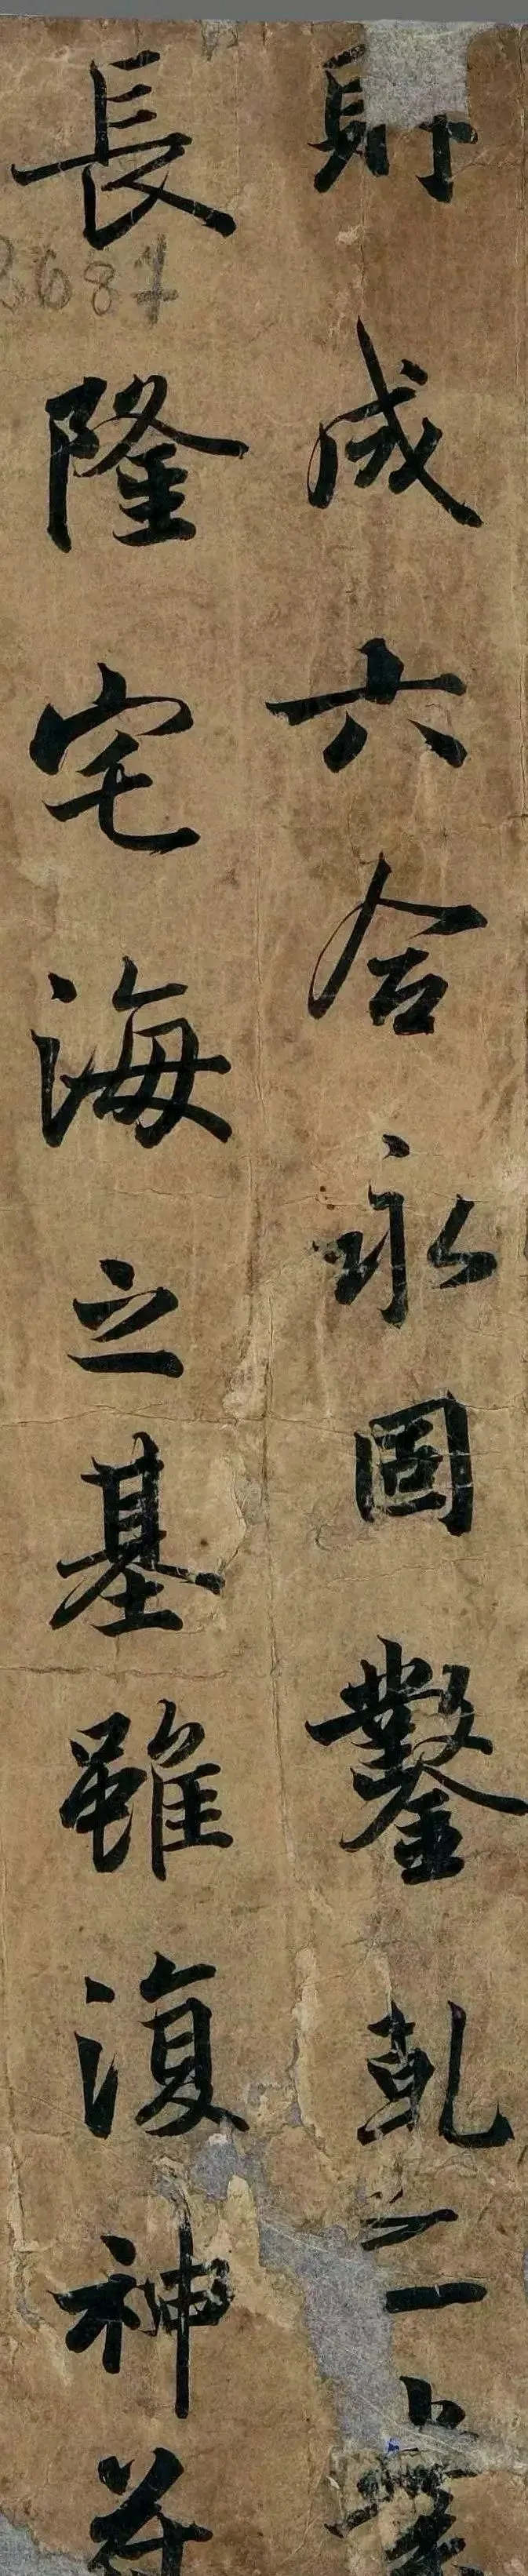 成六合永固鑿乾之業
長隆宅海之基雖復神